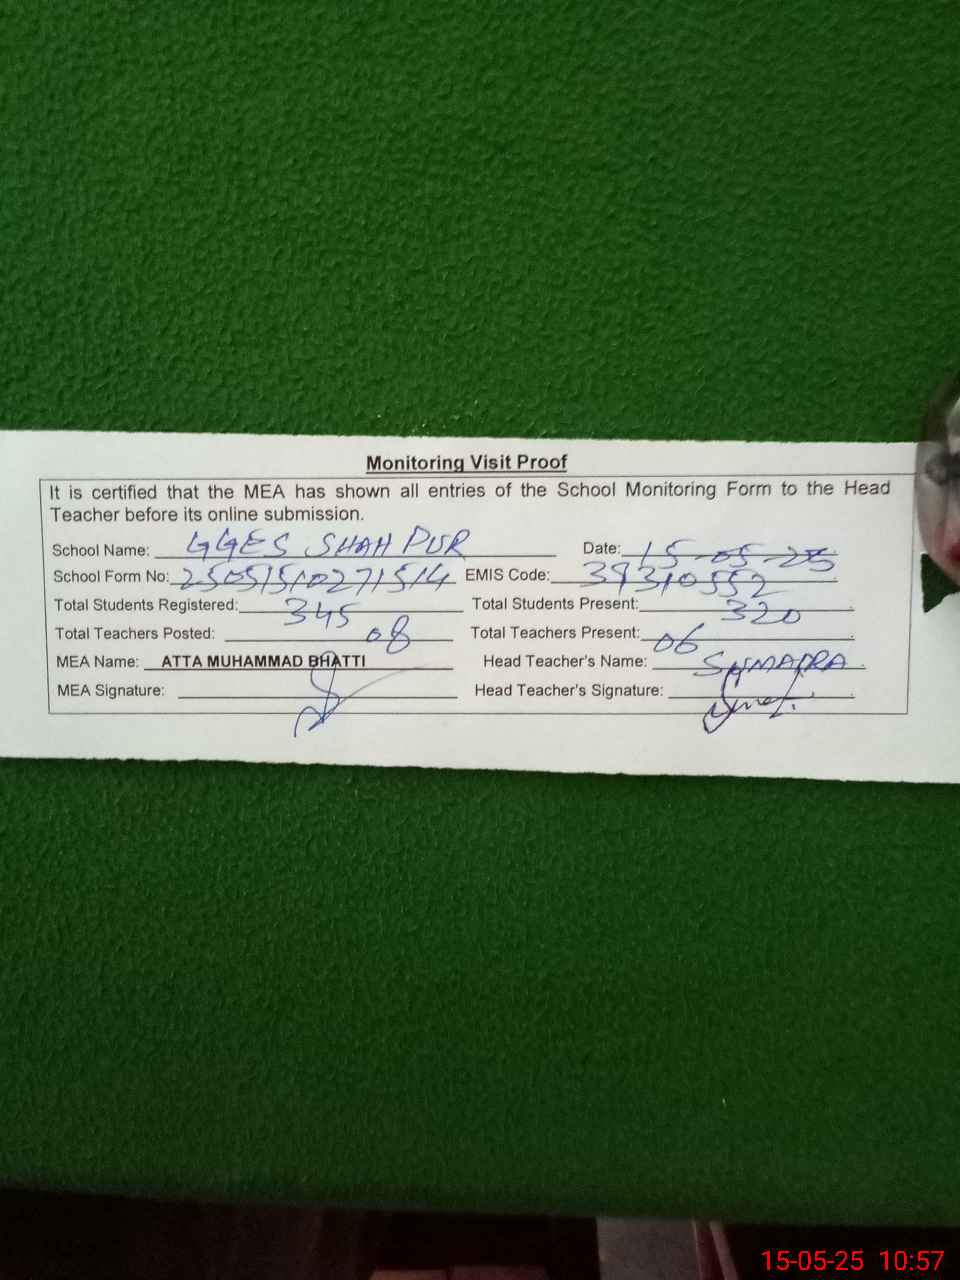 Monitoring Visit Proof
It is certified that the MEA has shown all entries of the School Monitoring Form to the Head
Teacher before its online submission.
School Name: GGES SHAH PUR Date: 15-05-25
School Form No: EMIS Code: 39310552
Total Students Registered: 345 Total Students Present: 320
Total Teachers Posted: 08 Total Teachers Present: 06
MEA Name: ATTA MUHAMMAD BHATTI Head Teacher's Name:
MEA Signature: Head Teacher's Signature:
15-05-25 10:57